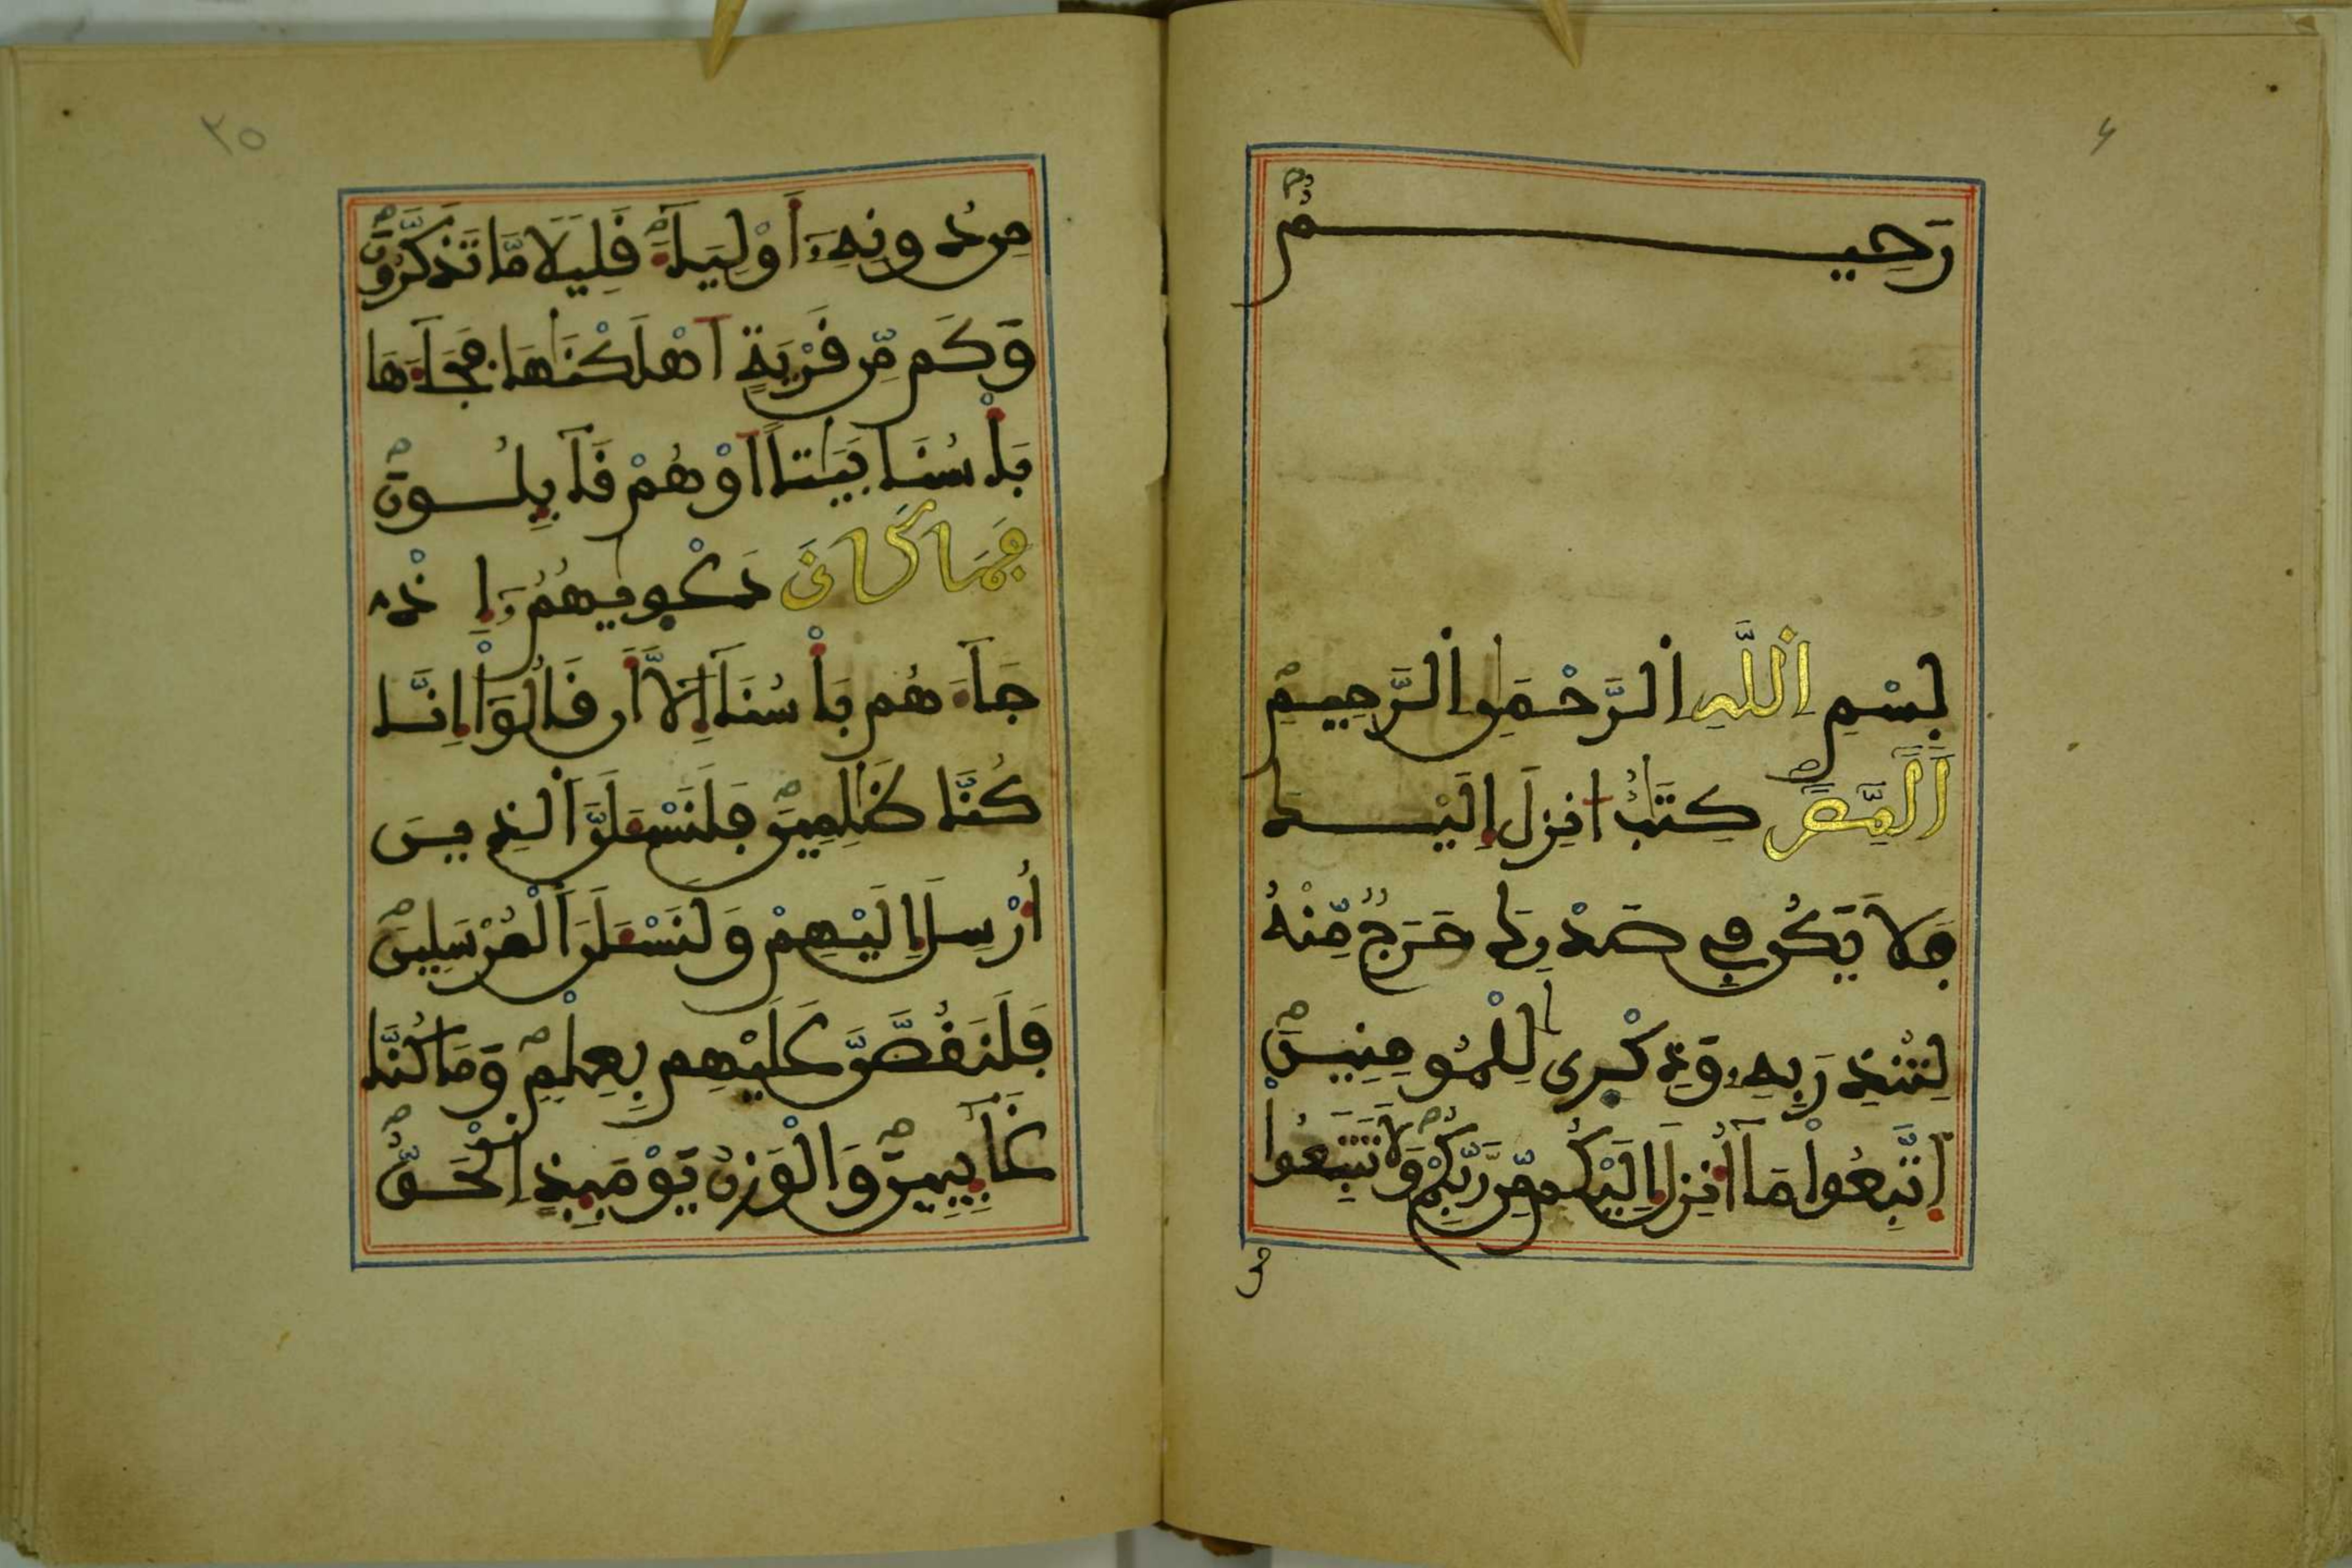 رَّحِيمٌ
بِسْمِ اِ۬للَّهِ اِ۬لرَّحْمَٰنِ اِ۬لرَّحِيمِ
أَلَٓمِّٓصَٓ كِتَٰبٌ ا۟نزِلَ إِلَيْكَ
فَلَا يَكُن فِے صَدْرِكَ حَرَجٌ مِّنْهُ
لِتُنذِرَ بِهِۦ وَذِكْر۪ىٰ لِلْمُومِنِينَ
اَ۪تَّبِعُوا۟ مَآ أُنزِلَ إِلَيْكُم مِّن رَّبِّكُمْ وَلَا تَتَّبِعُوا۟
مِن دُونِهِۦٓ أَوْلِيَآءَ قَلِيلًا مَّا تَذَّكَّرُونَ
وَكَم مِّن قَرْيَةٍ اَهْلَكْنَٰهَا فَجَآءَهَا
بَأْسُنَا بَيَٰتًا اَوْ هُمْ قَآئِلُونَ
فَمَا كَانَ دَعْو۪يٰهُمُۥٓ إِذْ
جَآءَهُم بَأْسُنَآ إِلَّآ أَن قَالُوٓا۟ إِنَّا
كُنَّا ظَٰلِمِينَ فَلَنَسْـَٔلَنَّ اَ۬لذِينَ
أُرْسِلَ إِلَيْهِمْ وَلَنَسْـَٔلَنَّ اَ۬لْمُرْسَلِينَ
فَلَنَقُصَّنَّ عَلَيْهِم بِعِلْمٍ وَمَا كُنَّا
غَآئِبِينَ وَالْوَزْنُ يَوْمَئِذٍ اِ۬لْحَقُّ